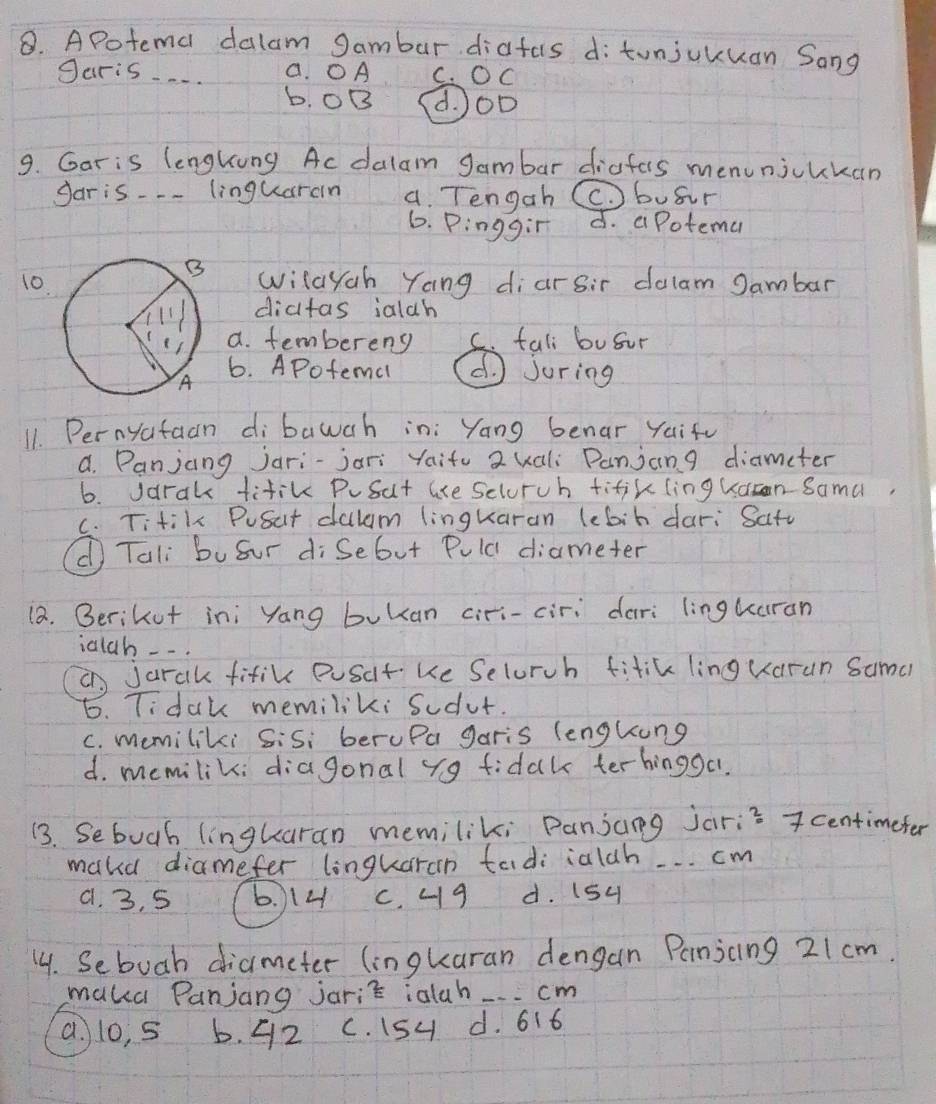 8. APotema dalam gambar diatas ditunjukkan Sang
garis.... a. OA c. OC
b. OB d. OD
9. Garis lengkung Ac dalam gambar diatas menunjukkan
garis--- lingkaran a. Tengah c. busur
b. Pinggir d. aPotema
10. B wilayah Yang diarsir dalam gambar
diatas ialah
a. tembereng c. tali busur
A b. APotema d. Juring
11. Pernyataan dibawah ini Yang benar Yaitu
a. Panjang jari-jari Yaitu 2 kali Panjang diameter
b. Jarak titik Pusat ke Seluruh titik lingkaran Sama.
c. Titik Pusat dalam lingkaran lebih dari Satu
d. Tali busur diSebut Pula diameter
12. Berikut ini Yang bukan ciri-ciri dari lingkaran
ialah---
a. jarak titik Pusat Ke Seluruh titik lingkaran Sama
b. Tidak memiliki Sudut.
c. memiliki SiSi beruPa garis lengkung
d. memiliki diagonal Yg tidak terhingga.
13. Sebuah lingkaran memiliki Panjang jari² 7 centimeter
maka diameter lingkaran tadi ialah ... cm
a. 3,5 b. 14 c. 49 d. 154
14. Sebuah diameter lingkaran dengan Panjang 21 cm.
maka Panjang jari² ialah ... cm
a. 10,5 b. 42 c. 154 d. 616